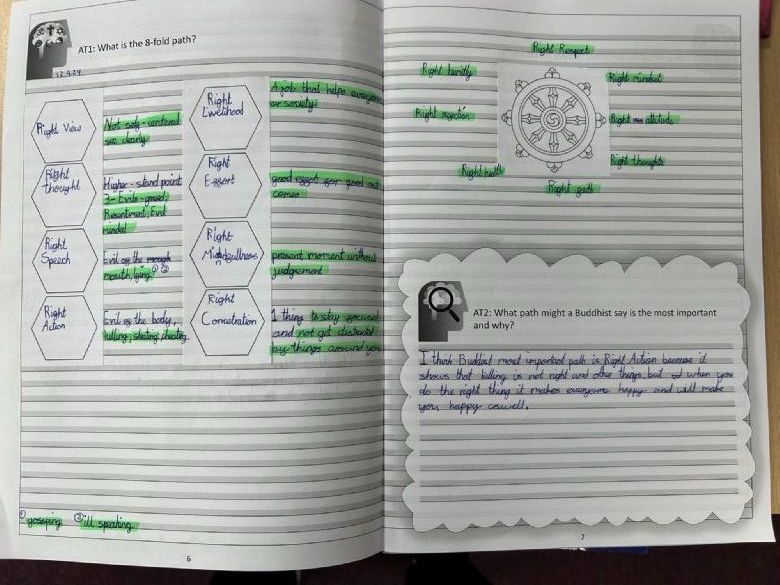 AT1: What is the 8-fold path?
12.4.24
Right View
Not self centered
see clearly
Right
thought
Higher-stand point
3-Evils-greed,
Resentment, Evil
mindet
Right
Speech
Evil of the
mouth, lying ① ②
Right
Action
Evil of the body,
killing, stealing,
Right
Livelihood
A job that helps everyone
or society
Right
Effort
good effort for good out
comes
Right
Mindfullness
present moment without
judgement
Right
Concetration
1 thing to stay
and not get distracted
by things around you
① gossiping ② ill speaking
6
Right Respect
Right
Right mindset
Right rejection
Right attitude
Right
Right thoughts
Right
AT2: What path might a Buddhist say is the most important
and why?
I think Buddist most important path is Right Action because it
shows that killing is not right and other things but when you
do the right thing it makes everyone happy and will make
you happy aswell.
7